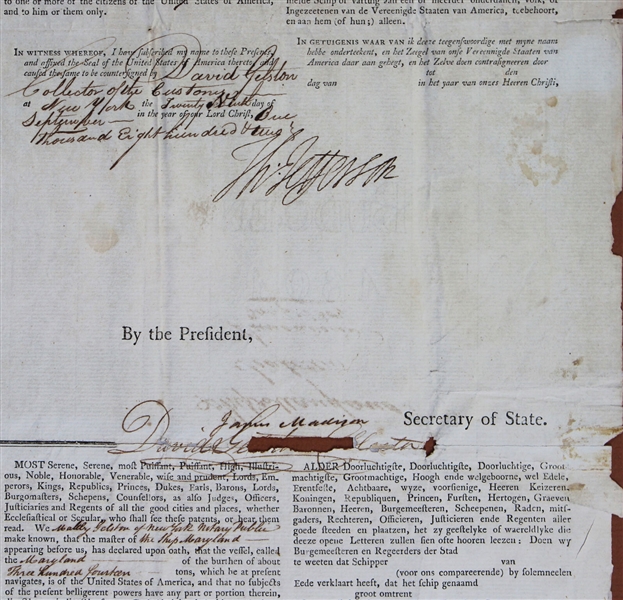 to one or more of the citizens of the United States of America,
and to him or them only.
IN WITNESS WHEREOF, I have subscribed my name to these Presents,
and affixed the Seal of the United States of America thereto, and
caused the same to be countersigned by David Gelston
Collector of the Customs
at New York the Twenty day of
September in the year of our Lord Christ, One
thousand Eight hundred &
Th: Jefferson
By the President,
James Madison Secretary of State.
David
MOST Serene, Serene, most Puissant, Puissant, High, Illustri-
ous, Noble, Honorable, Venerable, wise and prudent, Lords, Em-
perors, Kings, Republics, Princes, Dukes, Earls, Barons, Lords,
Burgomasters, Schepens, Counsellors, as also Judges, Officers,
Justiciaries and Regents of all the good cities and places, whether
Ecclesiastical or Secular, who shall see these patents, or hear them
read. We of New York Notary Public
make known, that the master of the Ship Maryland
appearing before us, has declared upon oath, that the vessel, called
the Maryland of the burthen of about
Three hundred fourteen tons, which he at present
navigates, is of the United States of America, and that no subjects
of the present belligerent powers have any part or portion therein,
Ingezeetenen van de Vereenigde Staaten van America, toebehoort,
en aan hem (of hun;) alleen.
IN GETUIGENIS WAAR VAN ik deeze teegenswoordige met myne naam
hebbe onderteekent, en het Zeegel van onse Vereenigde Staaten van
America daar aan gehegt, en het Zelve doen contrasigneeren door
tot den
dag van in het jaar van onzes Heeren Christi,
ALDER Doorluchtigste, Doorluchtigste, Doorluchtige, Groot
machtigste, Grootmachtige, Hoogh ende welgeboorne, wel Edele,
Erentfeste, Achtbaare, wyze, voorsienige, Heeren Keizeren,
Koningen, Republiquen, Princen, Fursten, Hertogen, Graeven
Baronnen, Heeren, Burgemeesteren, Scheepenen, Raden, mits-
gaders, Rechteren, Officieren, Justicieren ende Regenten aller
goede steeden en plaatzen, het zy geestelyke of waereldlyke die
deeze opene Letteren zullen sien ofte hooren leezen: Doen wy
Burgemeesteren en Regeerders der Stad
te weeten dat Schipper van
(voor ons compareerende) by solemneelen
Eede verklaart heeft, dat het schip genaamd
groot omtrent